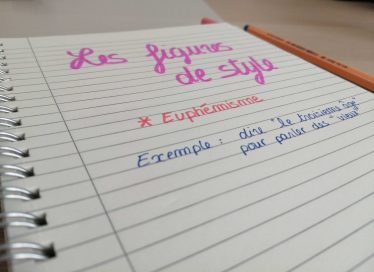 Les figures
de style
* Euphémisme
Exemple : dire "le troisième âge"
pour parler des "vieux"